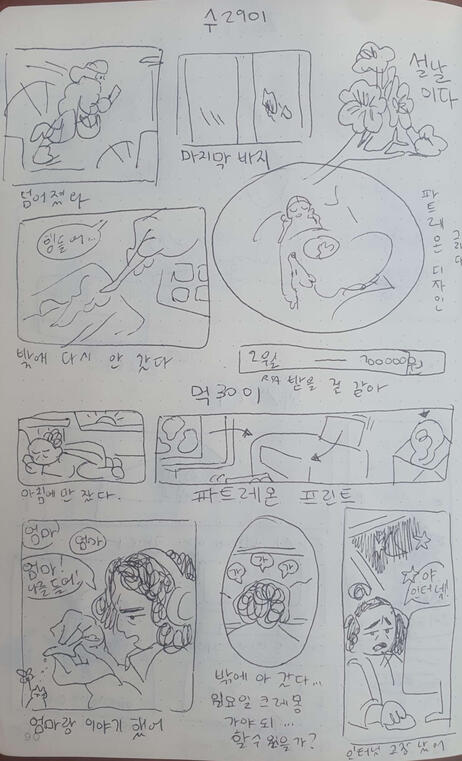 수2901
설날
이다
마지막 바지
넘어졌다
파트레온 디자인
그리다
힘들어...
밖에 다시 안 갔다
2월 — 200000원
받을 것 같아
먹3001
아침에만 잤다.
파트레온 프린트
엄마
엄마
엄마!
나를 들어!
각
각
각
야
인터넷!
밖에 아 갔다...
월요일 크레몽
가야 되...
할 수 있을가?
엄마랑 이야기 했어
인터넷 고장 났어
90